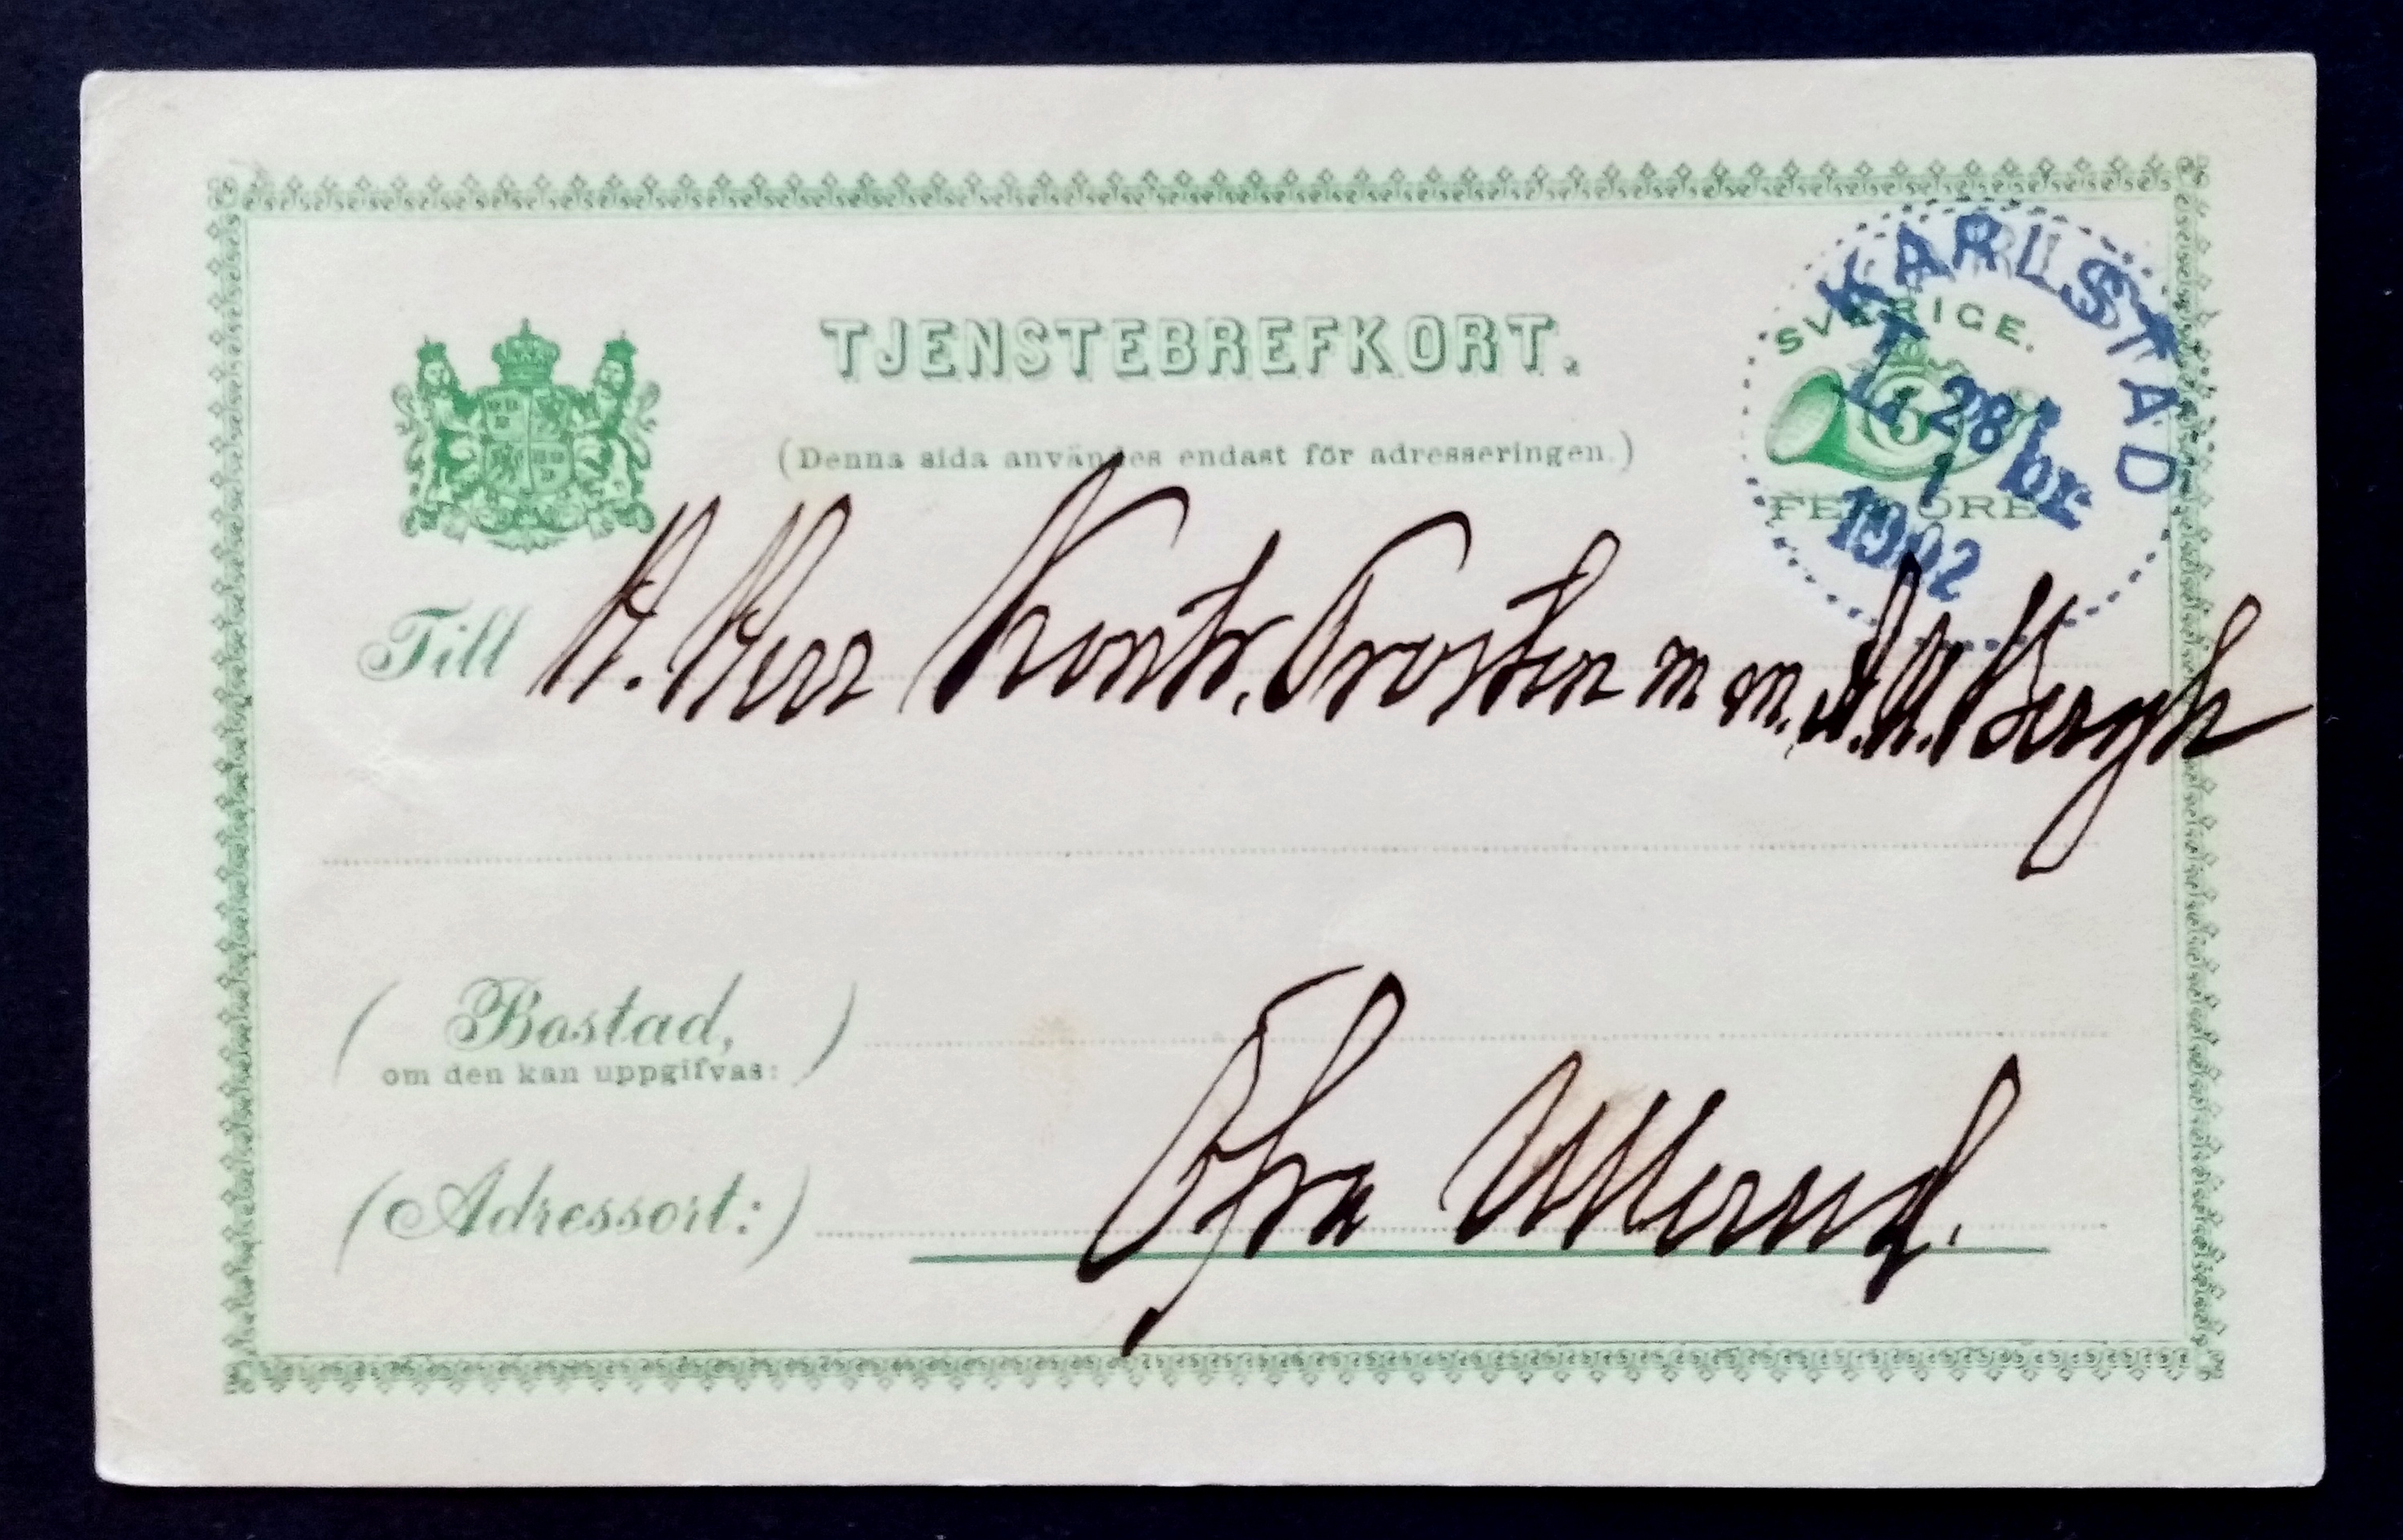 TJENSTEBREFKORT.
(Denna sida användes endast för adresseringen.)
KARLSTAD
SVERIGE.
5
FEM ÖRE
28
1
1902
Till H. Herr Kontr. Prosten m m. A. U. Bergh
(Bostad,)
om den kan uppgifvas:
(Adressort:) Öfra Ullerud.